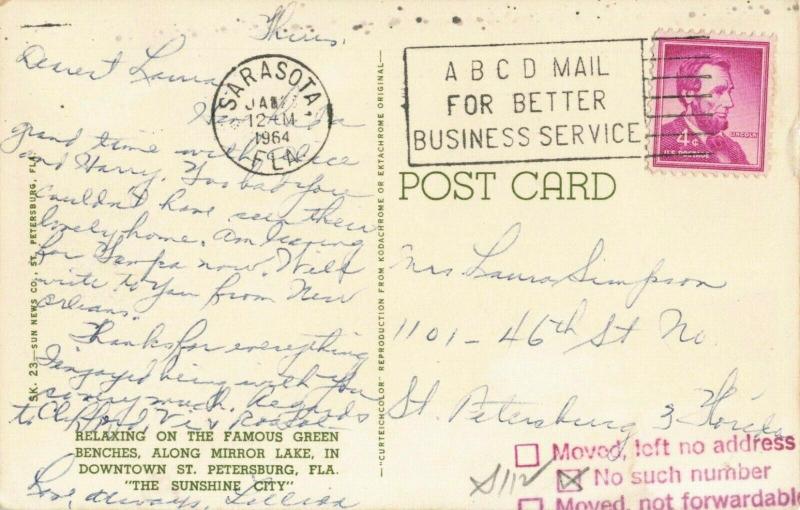 Thurs.
Dearest Laura
grand time with Alice
and Harry. You
couldn't have seen their
lovely home. Am leaving
for Tampa now. Will
write to you from New
Orleans.
Thanks for everything
I enjoyed being with you
very much. Regards
to Clifford, Vi &
RELAXING ON THE FAMOUS GREEN
BENCHES, ALONG MIRROR LAKE, IN
DOWNTOWN ST. PETERSBURG, FLA.
"THE SUNSHINE CITY"
Love, always, Lillian
SK. 23—SUN NEWS CO., ST. PETERSBURG, FLA.
—"CURTEICHCOLOR" REPRODUCTION FROM KODACHROME OR EKTACHROME ORIGINAL—
SARASOTA
JAN
12 AM
1964
FLA.
A B C D MAIL
FOR BETTER
BUSINESS SERVICE
4¢
LINCOLN
U.S. POSTAGE
POST CARD
Mrs Laura Simpson
1101 - 46th St No.
St. Petersburg 3 Florida
Moved, left no address
No such number
Moved, not forwardable